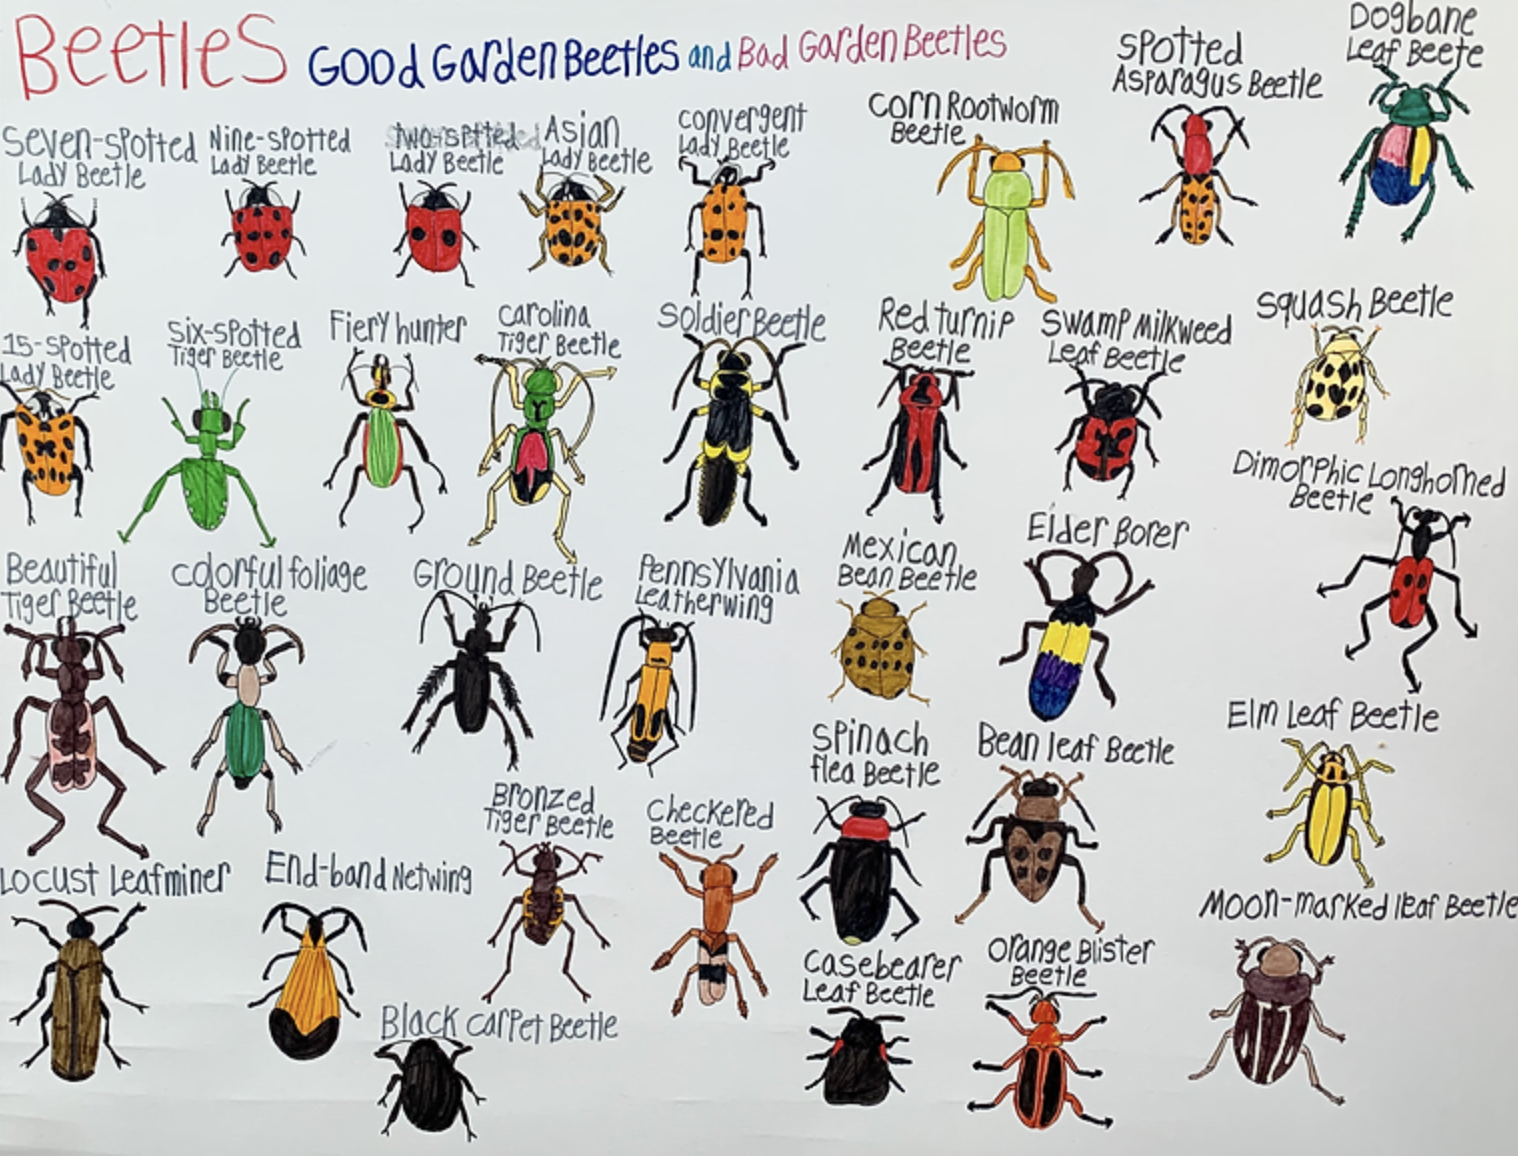 Beetles Good Garden Beetles and Bad Garden Beetles
Seven-Spotted
Lady Beetle
Nine-Spotted
Lady Beetle
two-spotted
Lady Beetle
Asian
Lady Beetle
convergent
Lady Beetle
Corn Rootworm
Beetle
Spotted
Asparagus Beetle
Dogbane
Leaf Beete
15-Spotted
Lady Beetle
Six-Spotted
Tiger Beetle
Fiery hunter
Carolina
Tiger Beetle
Soldier Beetle
Red turnip
Beetle
Swamp Milkweed
Leaf Beetle
Squash Beetle
Dimorphic Longhorned
Beetle
Beautiful
Tiger Beetle
Colorful foliage
Beetle
Ground Beetle
Pennsylvania
Leatherwing
Mexican
Bean Beetle
Elder Borer
Elm Leaf Beetle
Spinach
flea Beetle
Bean leaf Beetle
Bronzed
Tiger Beetle
Checkered
Beetle
Locust Leafminer
End-band Netwing
Black Carpet Beetle
Casebearer
Leaf Beetle
Orange Blister
Beetle
Moon-marked leaf Beetle